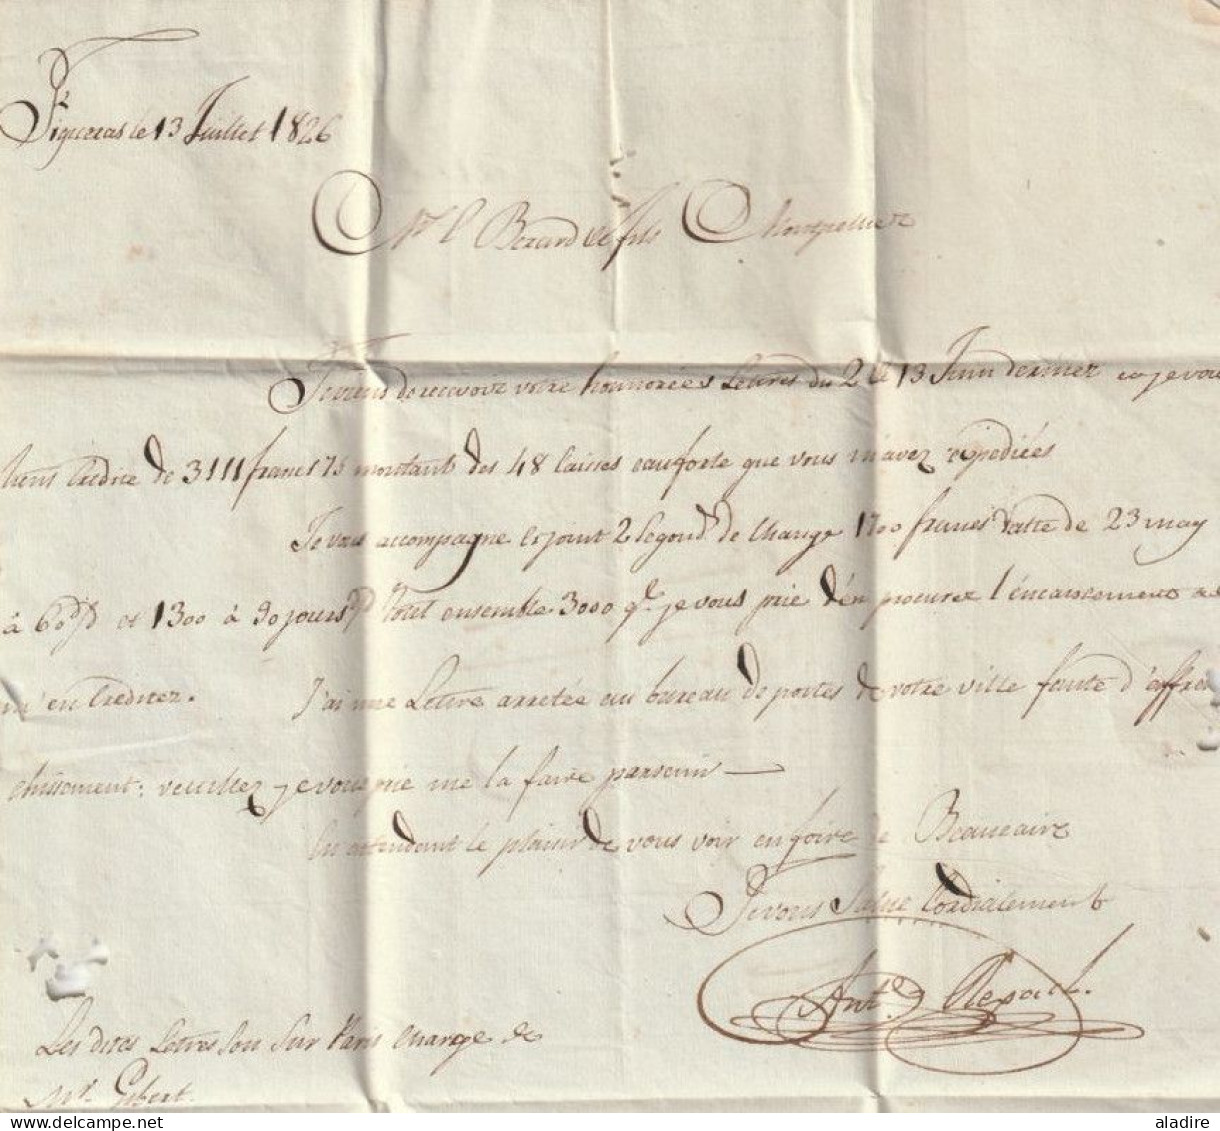 Figueras le 13 Juillet 1826
Mrs Berard & fils Montpellier
Je viens de recevoir votre honnorées Lettres du 2 & 13 Juin dernier et je vous
tiens Credité de 3111 francs 75 montant des 48 caisses eauforte que vous m'avez expediées
Je vous accompagne ci joint 2 segond de Change 1700 francs datte de 23 may
à 60 d/d et 1300 à 90 jours Tout ensemble 3000 je vous prie d'en procurer l'encaissement et
m'en Crediter. J'ai une Lettre arretée au bureau de postes de votre ville faute d'affran
chissement: veuillez je vous prie me la faire parvenir —
En attendant le plaisir de vous voir en foire de Beaucaire
Je vous Salue Cordialement
Les dites Lettres son sur Paris charge de
Mr. Gibert.
aladire
DELCAMPE.NET